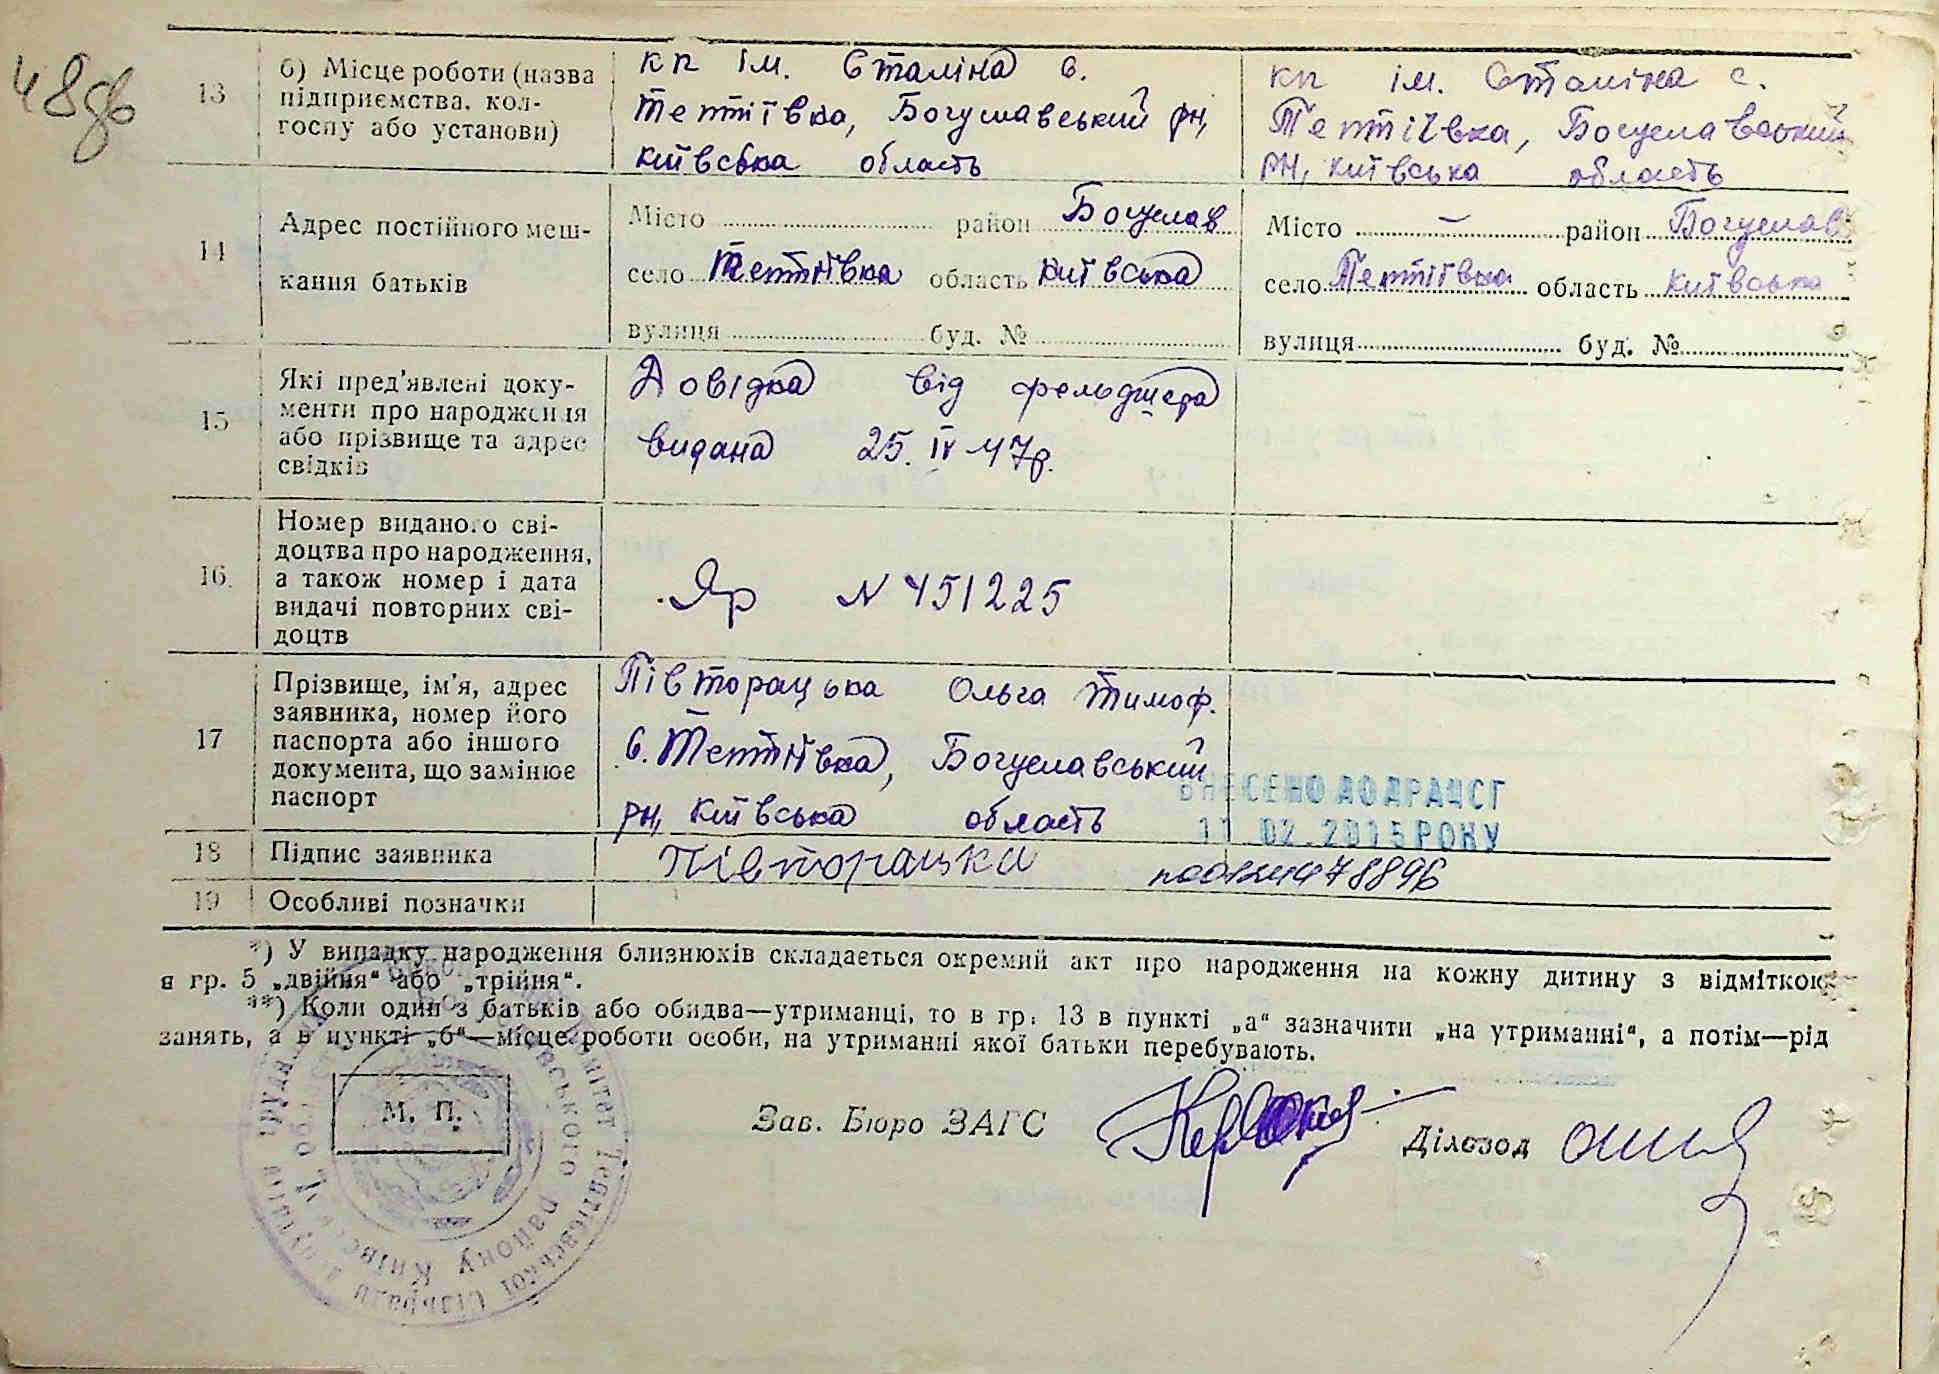 48зв
13
б) Місце роботи (назва
підприємства, кол-
госпу або установи)
кп ім. Сталіна с.
Тептіївка, Богуславський рн,
київська область
кп ім. Сталіна с.
Тептіївка, Богуславський
рн, київська область
14
Адрес постійного меш-
кання батьків
Місто район Богуслав
село Тептіївка область київська
вулиця буд. №
Місто — район Богуслав
село Тептіївка область київська
вулиця буд. №
15
Які пред'явлені доку-
менти про народження
або прізвище та адрес
свідків
Довідка від фельдшера
видана 25. IV 47р.
16
Номер виданого сві-
доцтва про народження,
а також номер і дата
видачі повторних сві-
доцтв
Яр N 451225
17
Прізвище, ім'я, адрес
заявника, номер його
паспорта або іншого
документа, що замінює
паспорт
Півторацька Ольга Тимоф.
с. Тептіївка, Богуславський
рн, київська область
ВНЕСЕНО ДО ДРАЦСГ
11.02.2015 РОКУ
18
Підпис заявника
Півторацька
19
Особливі позначки
*) У випадку народження близнюків складається окремий акт про народження на кожну дитину з відміткою
в гр. 5 „двійня“ або „трійня“.
**) Коли один з батьків або обидва—утриманці, то в гр. 13 в пункті „а“ зазначити „на утриманні“, а потім—рід
занять, а в пункті „б“—місце роботи особи, на утриманні якої батьки перебувають.
М. П.
Зав. Бюро ЗАГС
Діловод